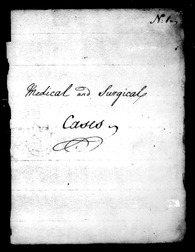 No. 1.
Medical and Surgical
Cases